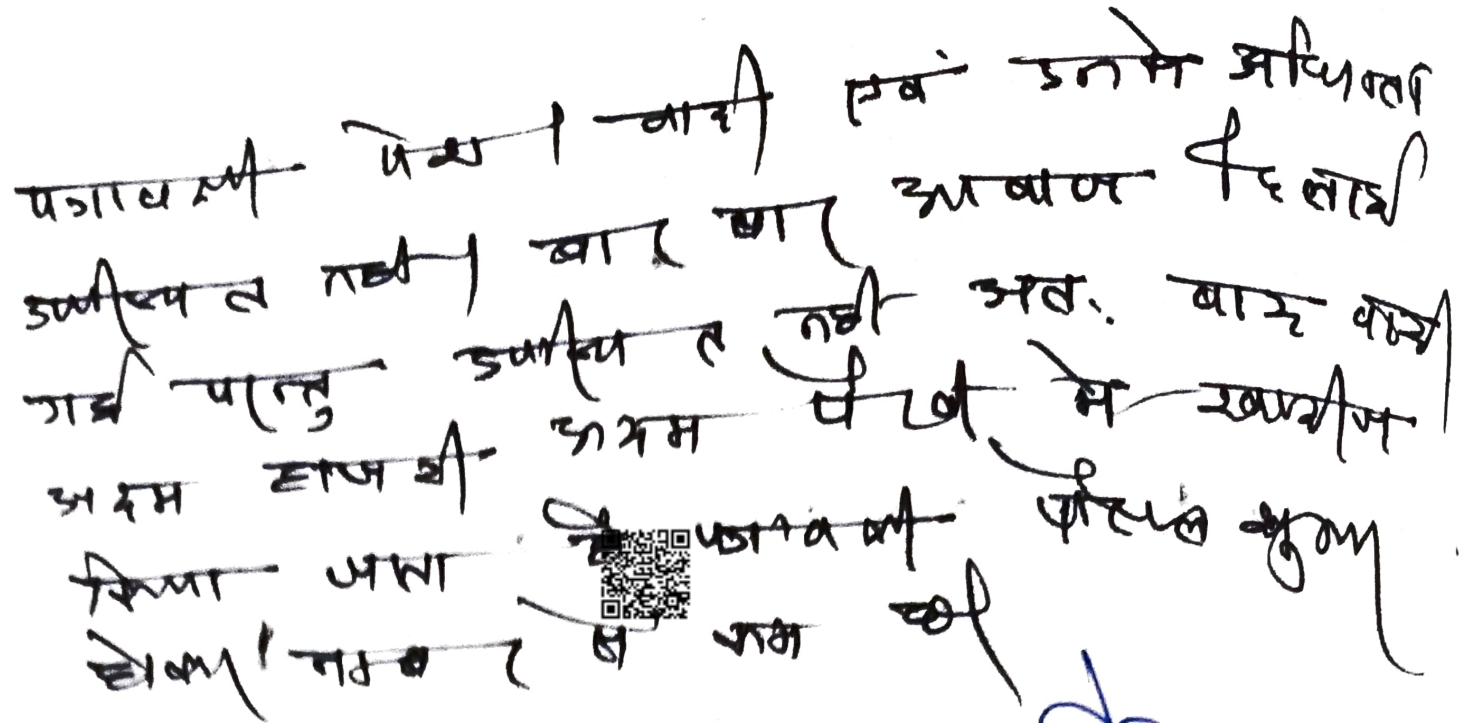 पत्रावली पेश। वादी एवं उनके अधिवक्ता
उपस्थित नहीं। बार बार आवाज दिलाई
गई परन्तु उपस्थित नहीं अत: वाद वादी
अदम हाजरी अदम पैरवी में खारीज
किया जाता है पत्रावली फैसल शुमार
होकर नम्बर से कम हो